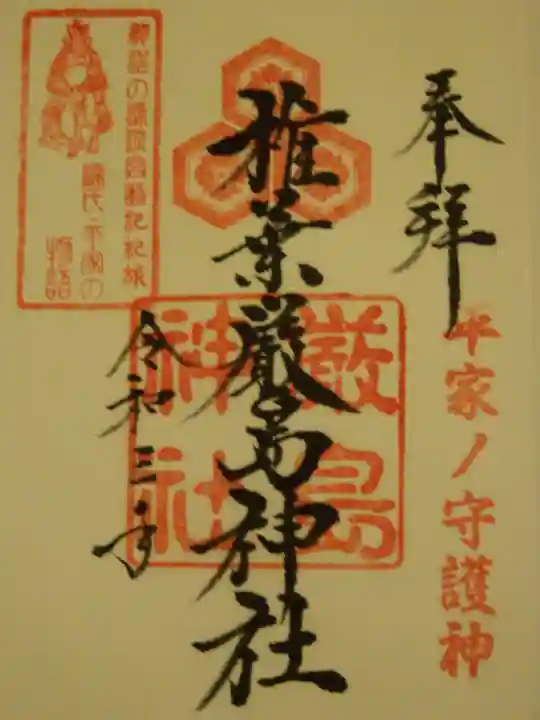 奉拝
平家ノ守護神
椎葉厳島神社
厳島
神社
令和三年
源氏・平家の
物語